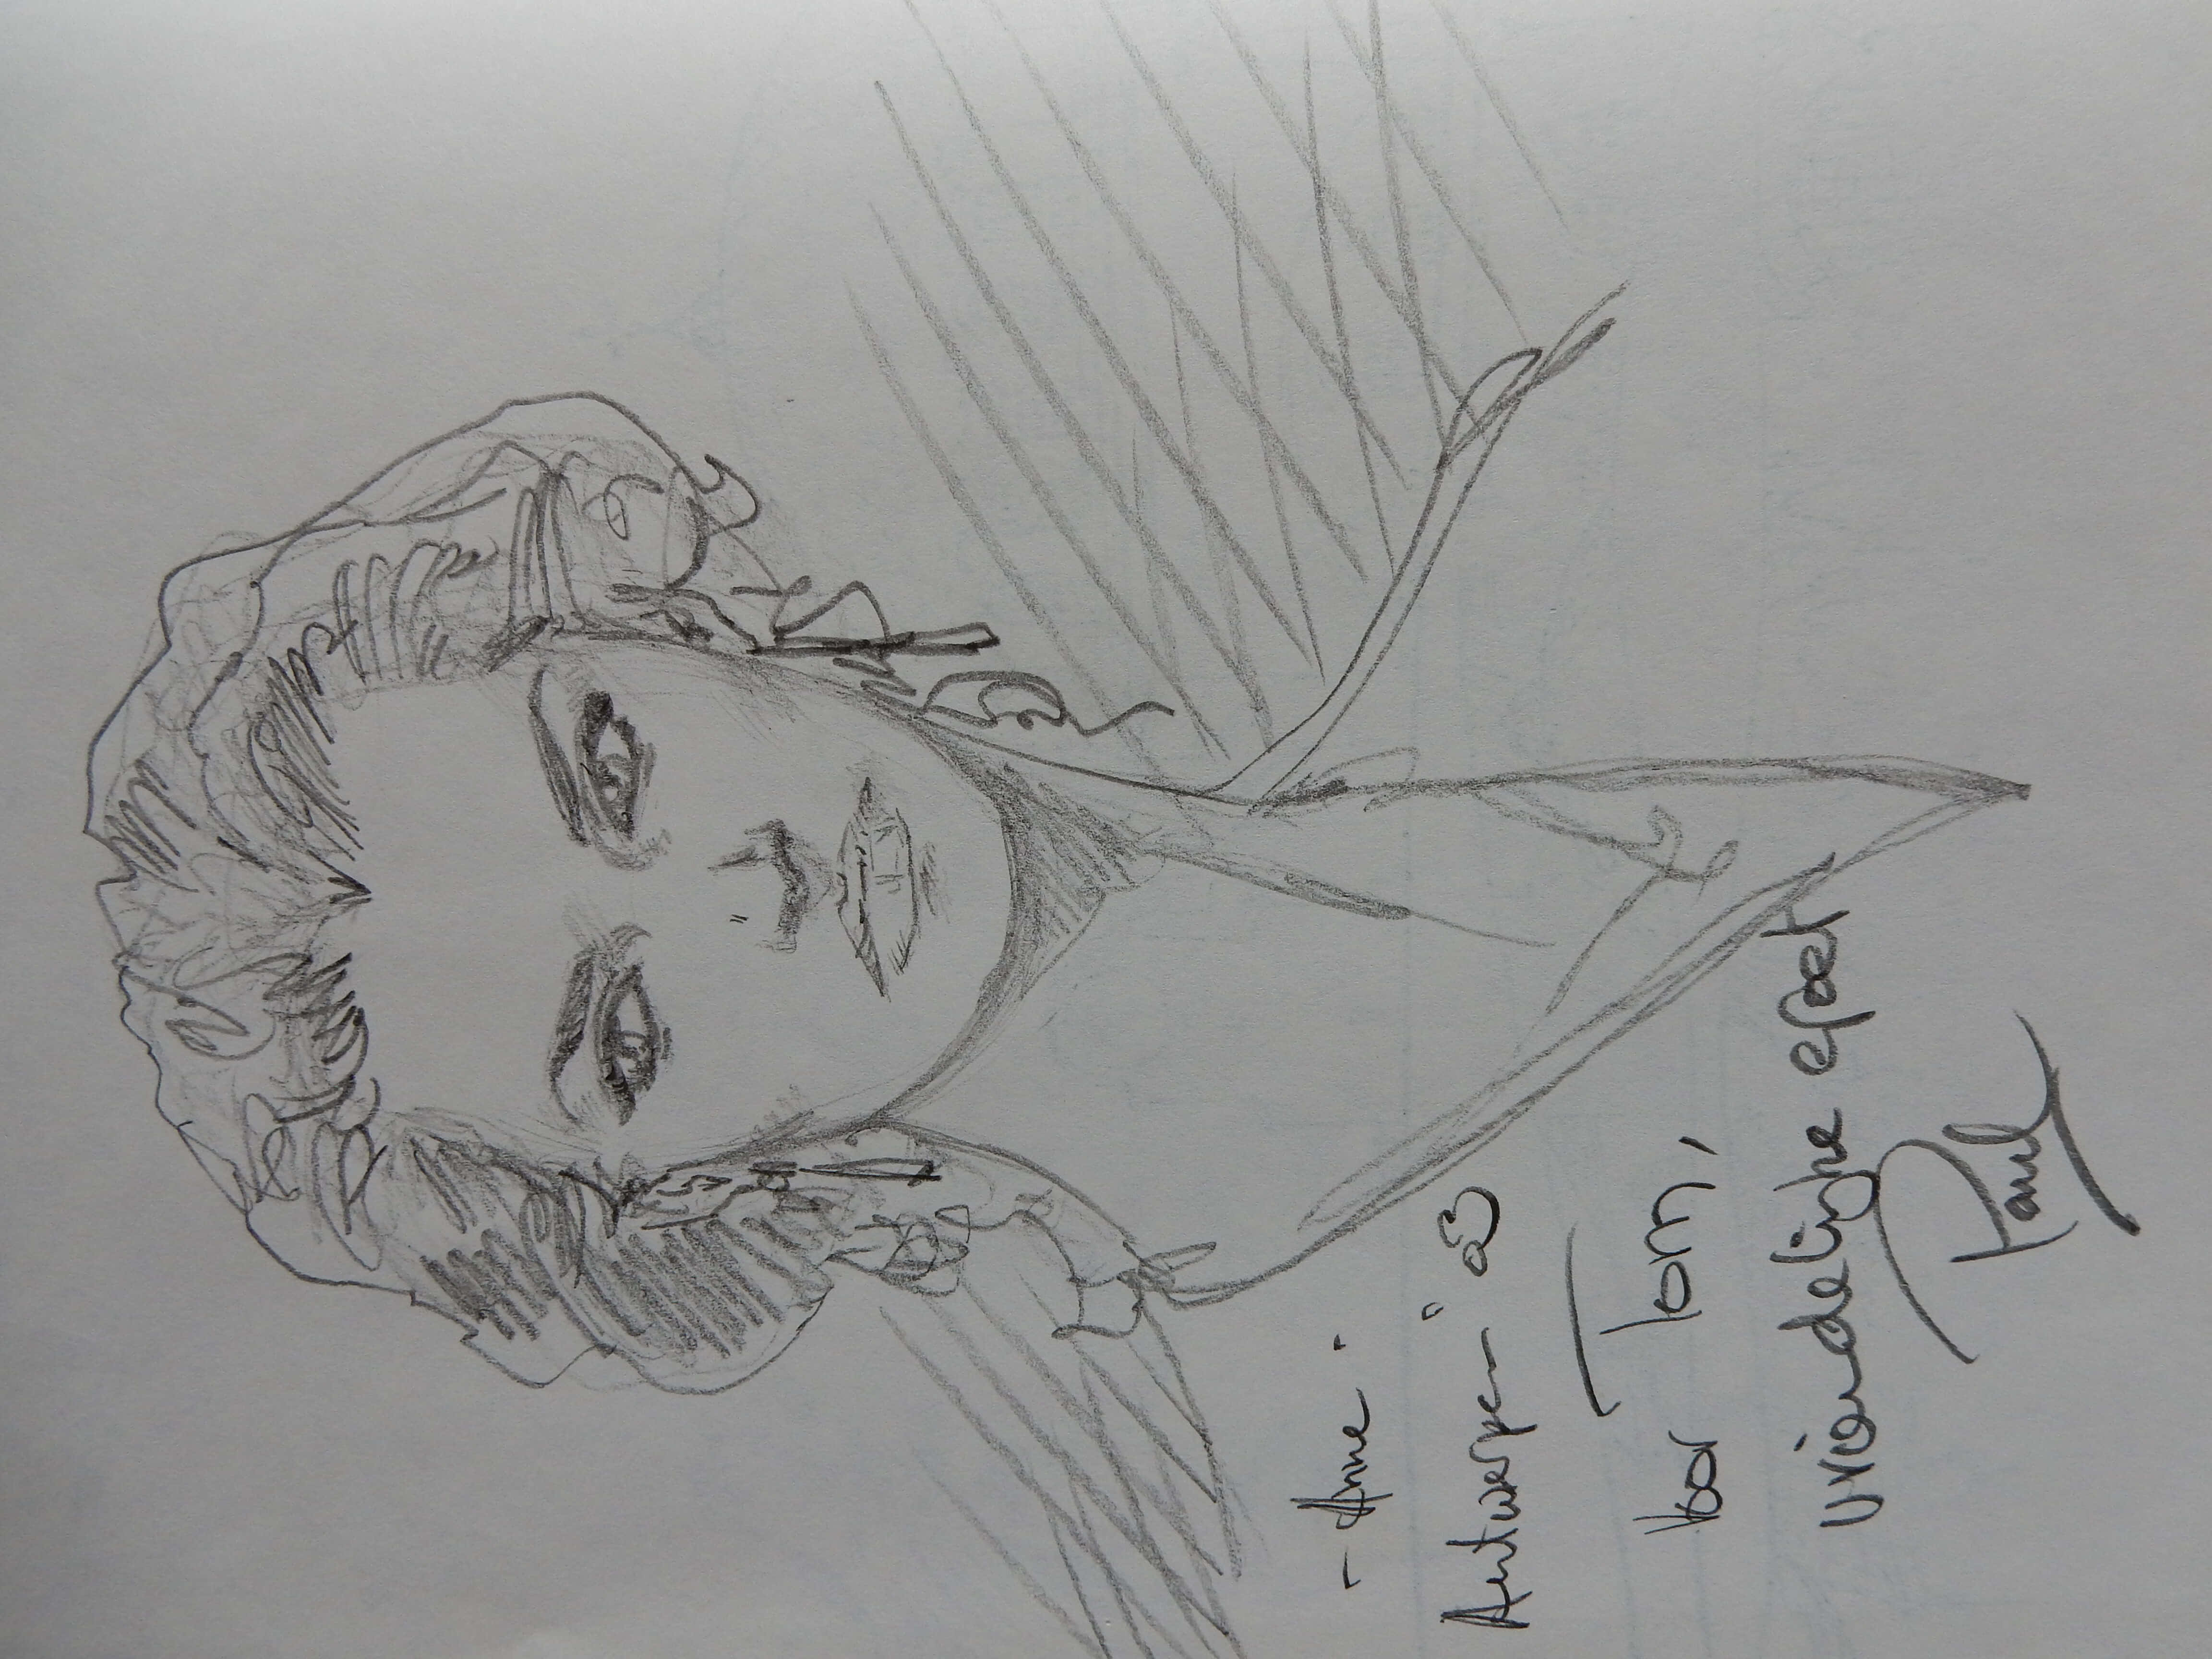 - Anne -
Antwerpen '03
Voor Tom,
vriendelijke groet
Paul